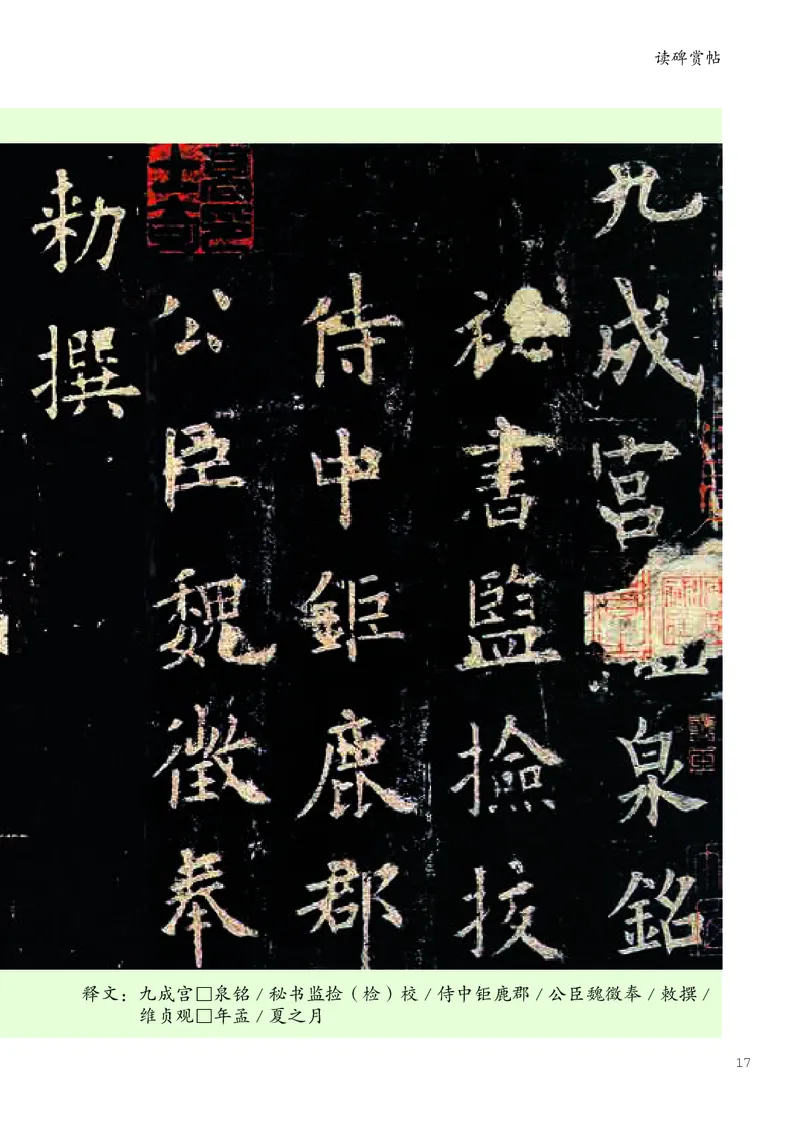 读碑赏帖
九成宫泉銘
秘書監撿挍
侍中鉅鹿郡
公臣魏徵奉
勑撰
释文：九成宫□泉铭/秘书监捡（检）校/侍中钜鹿郡/公臣魏徵奉/敕撰/
维贞观□年孟/夏之月
17